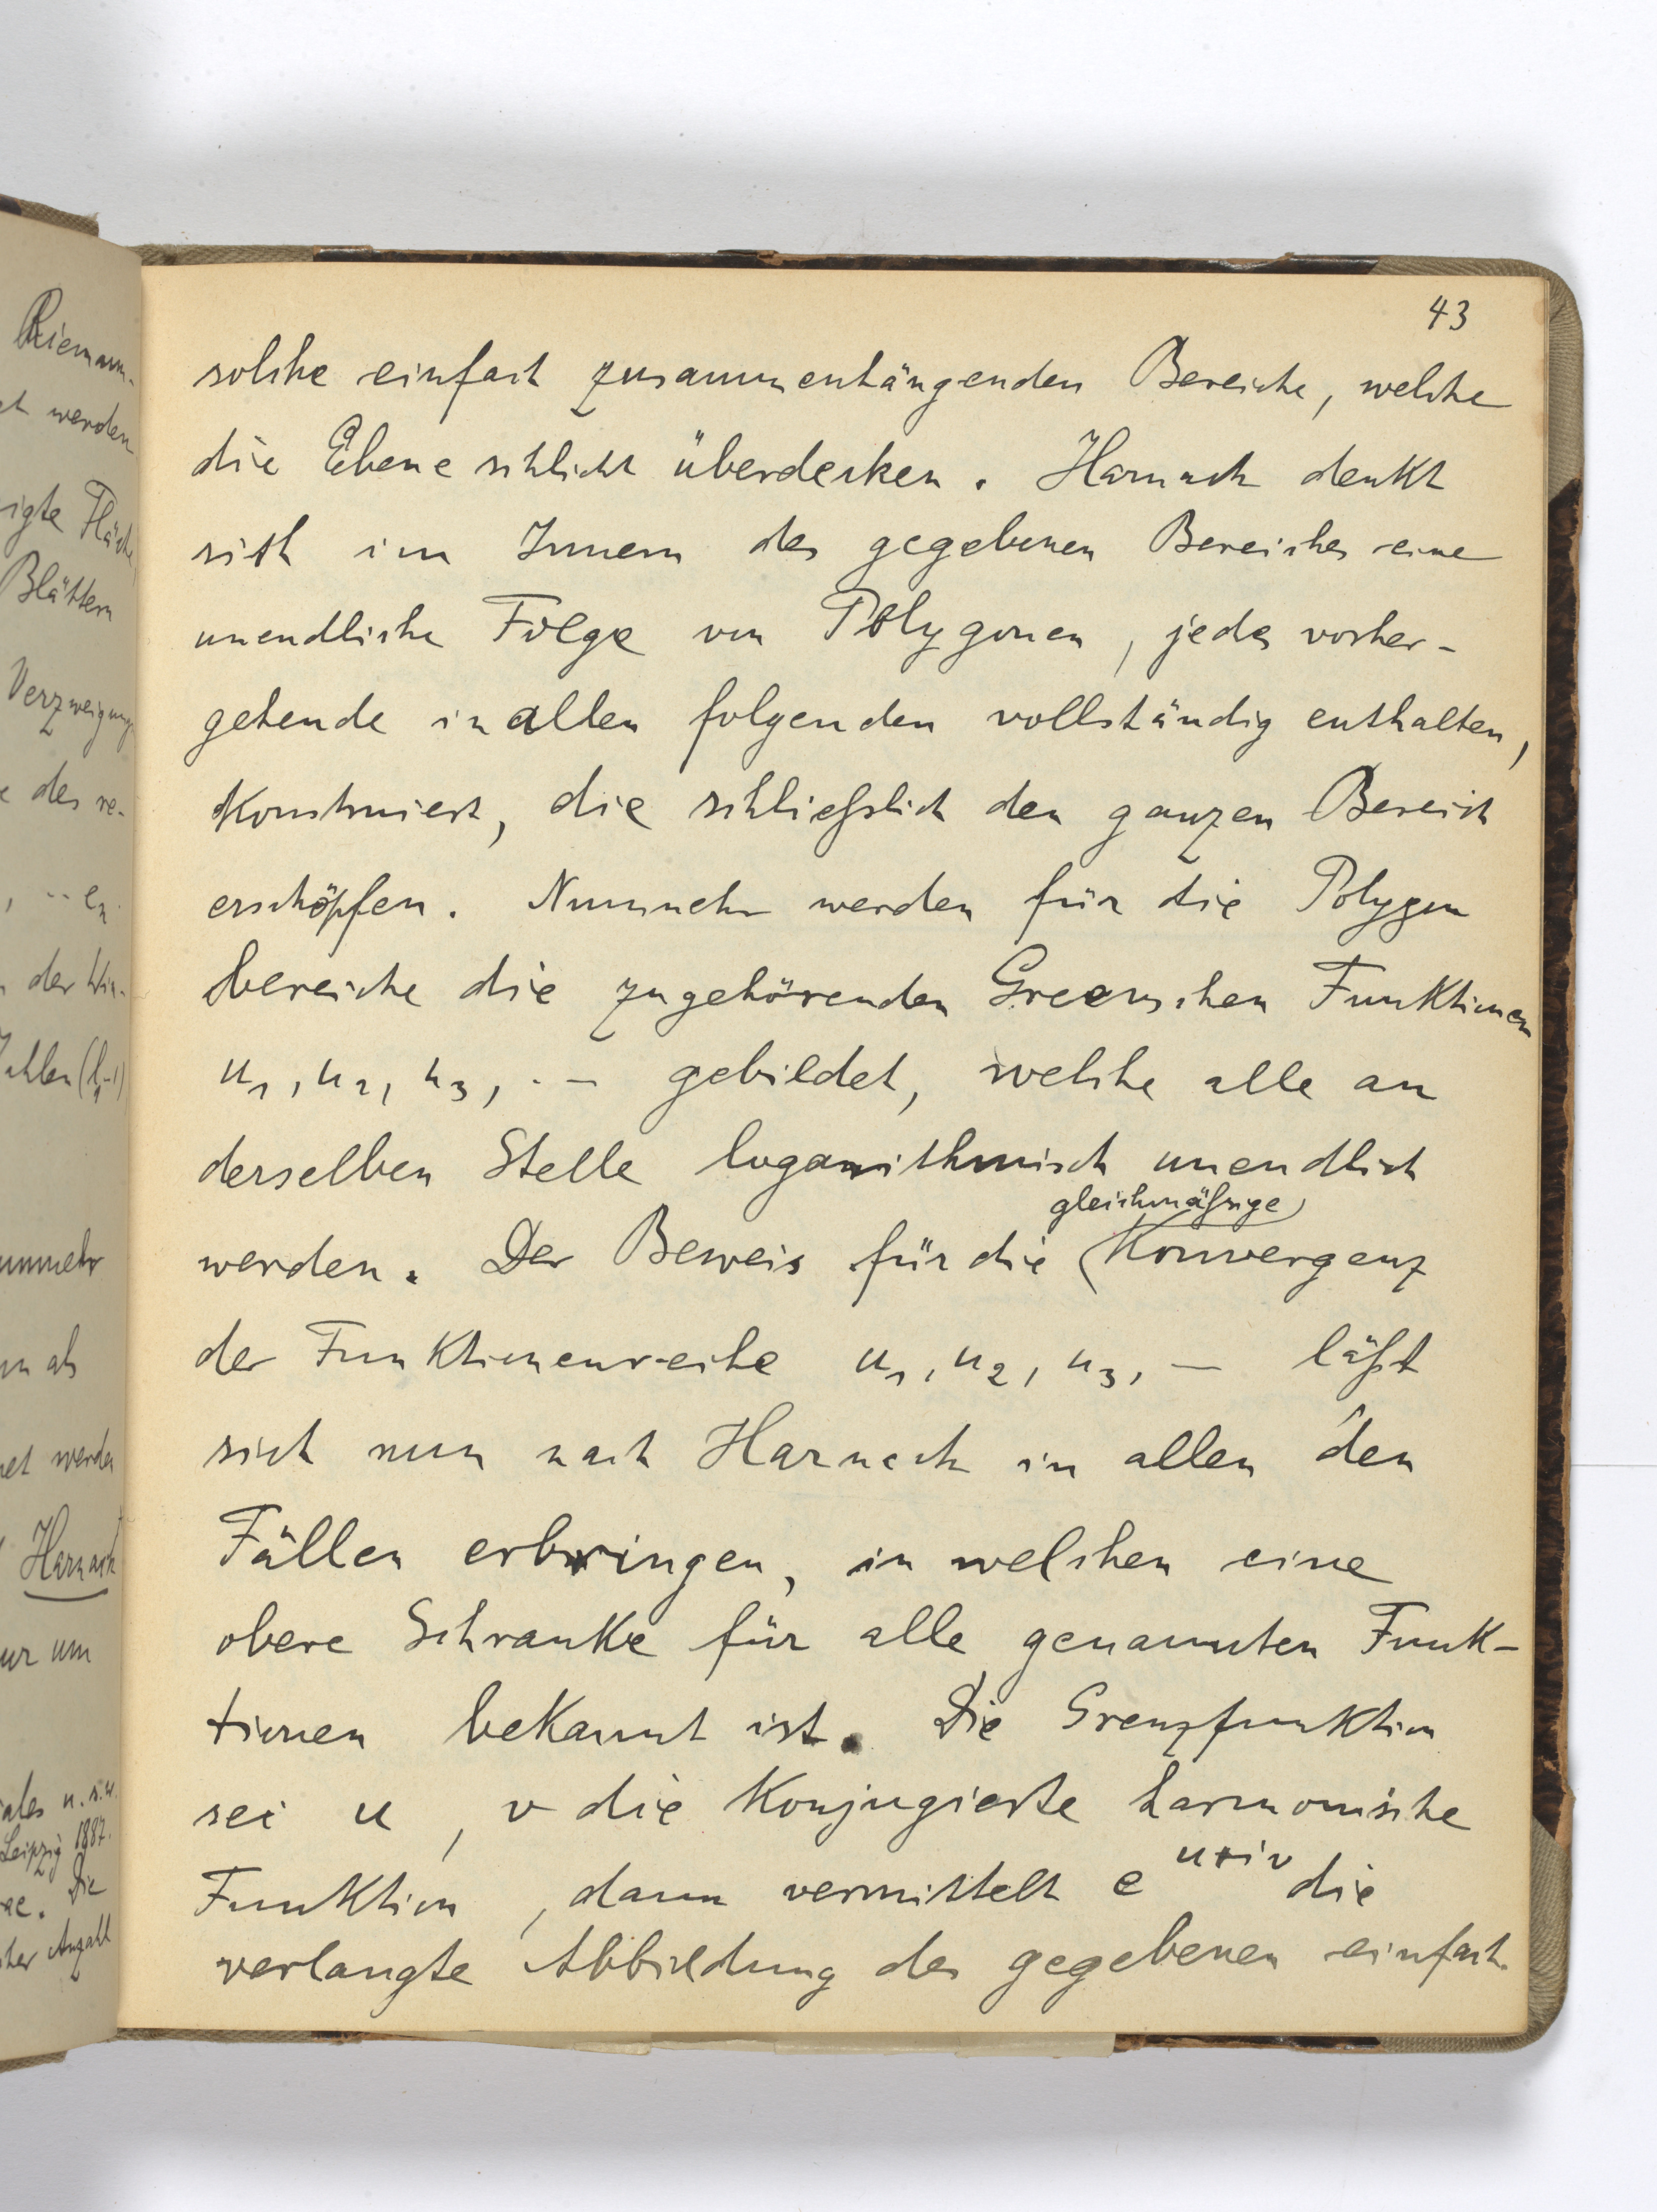 43
solche einfach zusammenhängenden Bereiche, welche
die Ebene schlicht überdecken. Harnack denkt
sich im Innern des gegebenen Bereiches eine
unendliche Folge von Polygonen, jedes vorher-
gehende in allen folgenden vollständig enthalten,
konstruiert, die schließlich den ganzen Bereich
erschöpfen. Nunmehr werden für die Polygon
bereiche die zugehörenden Greenschen Funktionen
u₁, u₂, u₃, .. – gebildet, welche alle an
derselben Stelle logarithmisch unendlich
gleichmäßige
werden. Der Beweis für die Konvergenz
der Funktionenreihe u₁, u₂, u₃, — läßt
sich nun nach Harnack in allen den
Fällen erbringen, in welchen eine
obere Schranke für alle genannten Funk-
tionen bekannt ist. Die Grenzfunktion
sei u, v die konjugierte harmonische
Funktion, dann vermittelt e^{u+iv} die
verlangte Abbildung des gegebenen einfach
Riemann-
werden
igte Fläche
Blättern
Verzweigungs
des re-
, -- eₙ
der Win-
unmehr
als
werden
Harnack
ur um
u.s.w.
Leipzig 1887.
Die
Anzahl